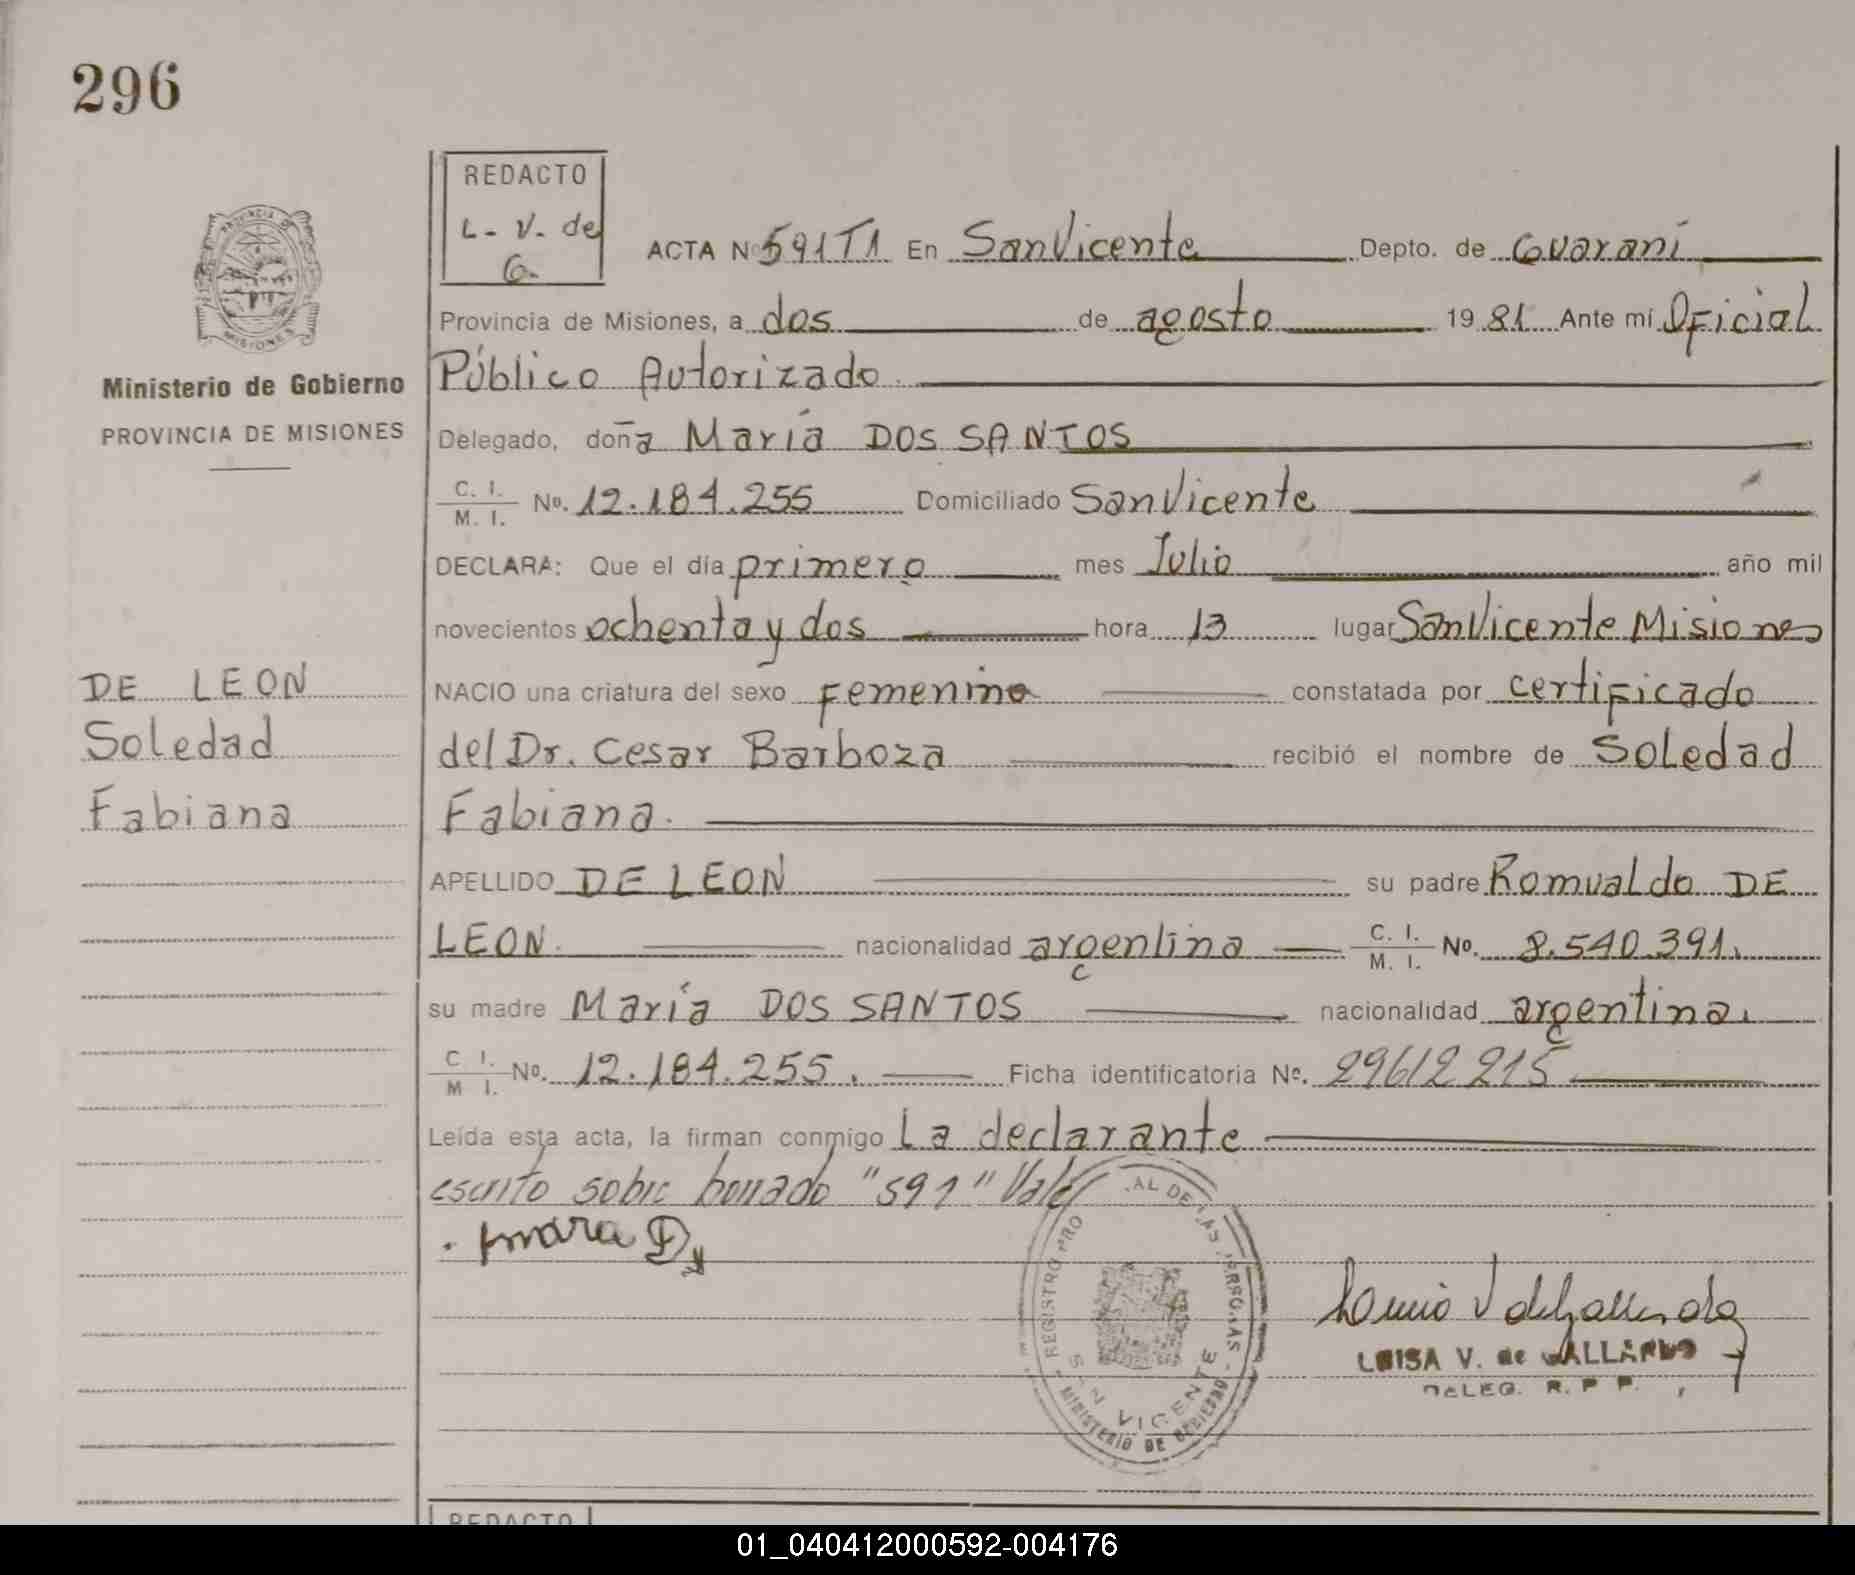 296
REDACTO
L. V. de
G.
ACTA Nº 591T1 En San Vicente Depto. de Guaraní
Provincia de Misiones, a dos de agosto 1981 Ante mí Oficial
Público Autorizado.
Ministerio de Gobierno
PROVINCIA DE MISIONES
Delegado, doña María DOS SANTOS
C. I. / M. I. No. 12.184.255 Domiciliado San Vicente
DECLARA: Que el día primero mes Julio año mil
novecientos ochenta y dos hora 13 lugar San Vicente Misiones
DE LEON
Soledad
Fabiana
NACIO una criatura del sexo Femenino constatada por certificado
del Dr. Cesar Barboza recibió el nombre de Soledad
Fabiana.
APELLIDO DE LEON su padre Romualdo DE
LEON. nacionalidad argentina C. I. / M. I. No. 8.540.391.
su madre María DOS SANTOS nacionalidad argentina.
C I. / M I. No. 12.184.255. Ficha identificatoria No. 29612215
Leída esta acta, la firman conmigo La declarante
escrito sobre borrado "591" Vale
LUISA V. de GALLARDO
DELEG. R. P. P.
REGISTRO PRO AL DE LAS PERSONAS
SAN VICENTE
MINISTERIO DE GOBIERNO
REDACTO
01_040412000592-004176